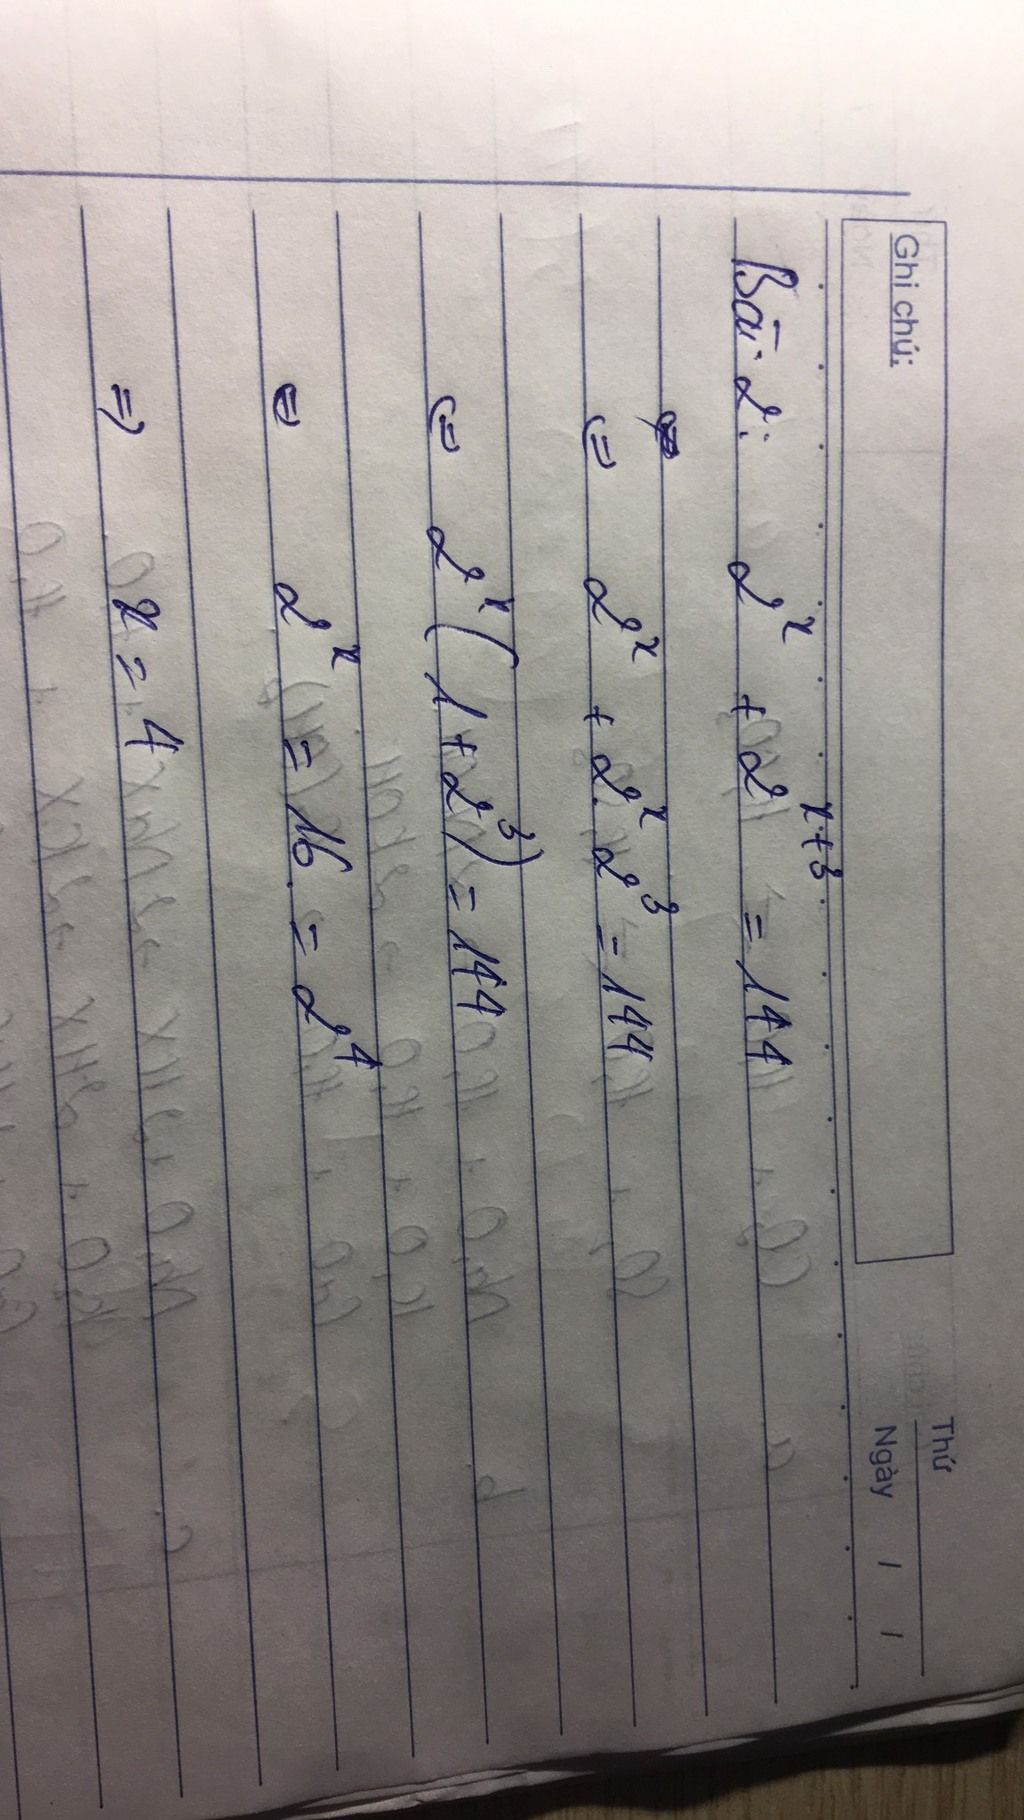 Thứ
Ghi chú:
Ngày / /
Bài 2: 2^x + 2^{x+3} = 144
(=) 2^x + 2^x. 2^3 = 144
(=) 2^x (1+2^3) = 144
(=) 2^x = 16 = 2^4
=) x = 4